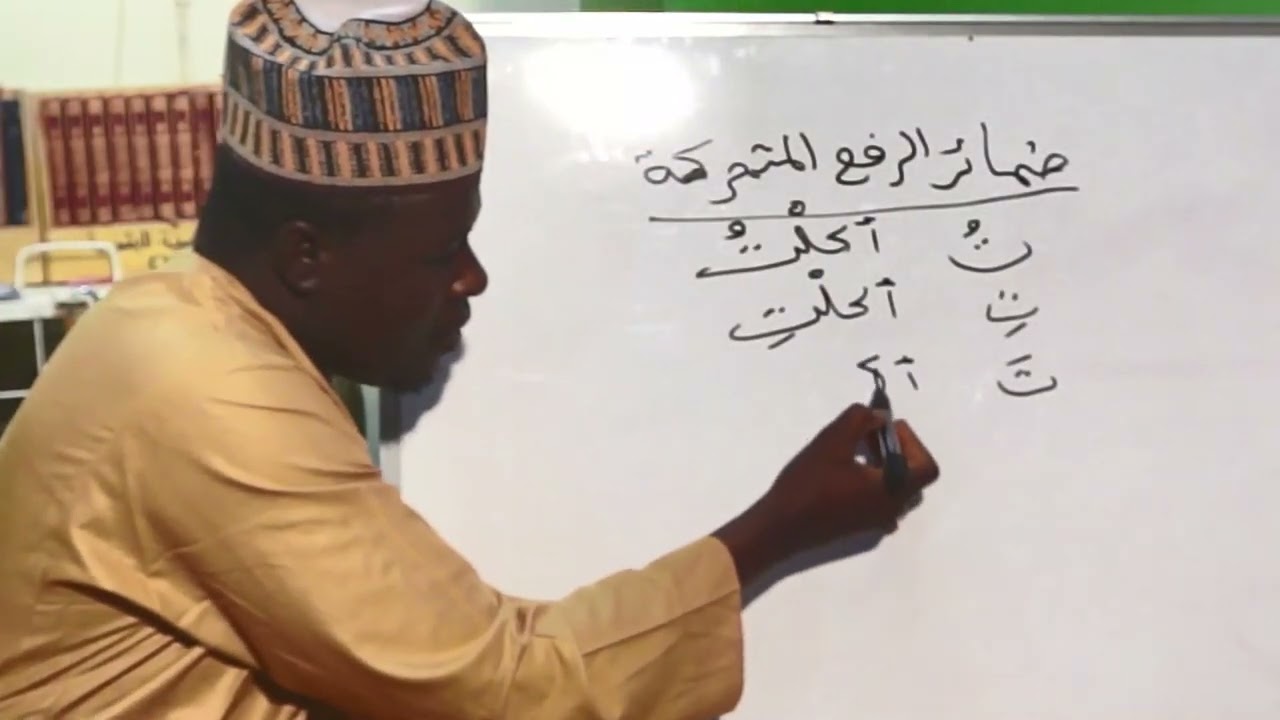 ضمائر الرفع المتحركة
تُ أكلْتُ
تِ أكلْتِ
تَ أك